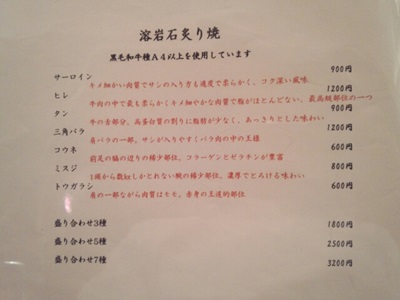 溶岩石炙り焼
黒毛和牛種A4以上を使用しています
サーロイン 900円
キメ細かい肉質でサシの入り方も適度で柔らかく、コク深い風味
ヒレ 1200円
牛肉の中で最も柔らかくキメ細やかな肉質で脂がほとんどない、最高級部位の一つ
タン 900円
牛の舌部分。高蛋白質の割りに脂肪が少なく、あっさりとした味わい
三角バラ 1200円
肩バラの一部。サシが入りやすくバラ肉の中の王様
コウネ 600円
前足の脇の辺りの稀少部位。コラーゲンとゼラチンが豊富
ミスジ 800円
1頭から数kgしかとれない腕の稀少部位、濃厚でとろける味わい
トウガラシ 600円
肩の一部ながら肉質はモモ。赤身の王道的部位
盛り合わせ3種 1800円
盛り合わせ5種 2500円
盛り合わせ7種 3200円